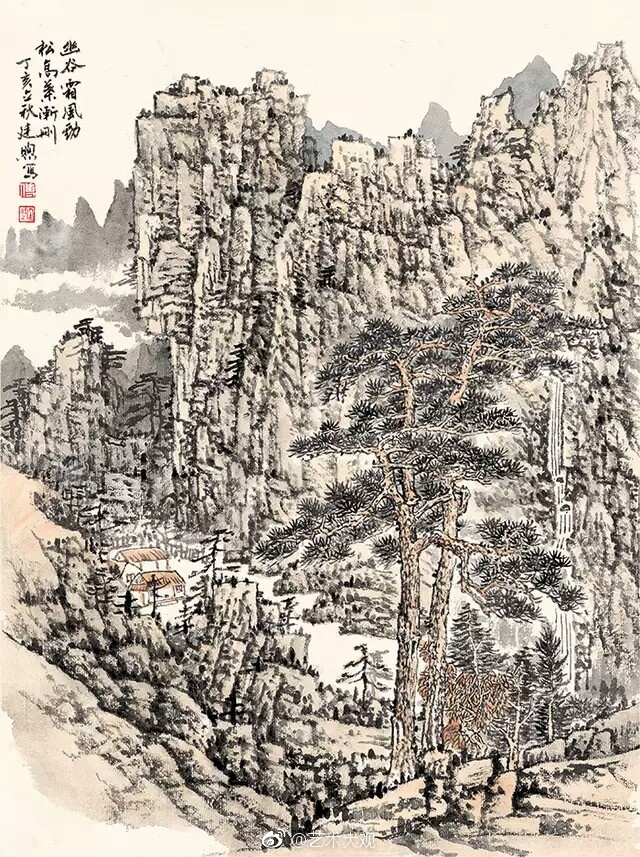 幽谷霜风动
松高叶渐刚
丁亥之秋建
写
@艺术大观